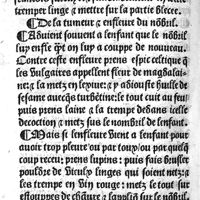 tremper linge & mettre sur la partie blecee.
¶ De la tumeur & enfleure du nõbril.
¶ Aduient souuent a lenfant que le nõbril
luy enfle qñt on luy a couppe de nouueau.
Contre ceste enfleure prens espic celtique q̃
les vulgaires appellent fleur de magdalai-
ne, & la metz en lexiue: & y adiouste huille de
sesame aucq̃s turbẽtine: le tout cuit au feu
puis prens laine & la trempe dedans icelle
decoction & metz sus le nombril de lenfant.
¶ Mais si lenfleure vient a lenfant pour
auoir trop pleure/ ou par toux/ ou par quelq̃
coup receu: prens lupins: puis fais brusler
pouldre de vieulx linges qui soient netz: &
les trempe en vin rouge: metz le tout sur
estouppes de chãure & lapliq̃ sur le nõbril.